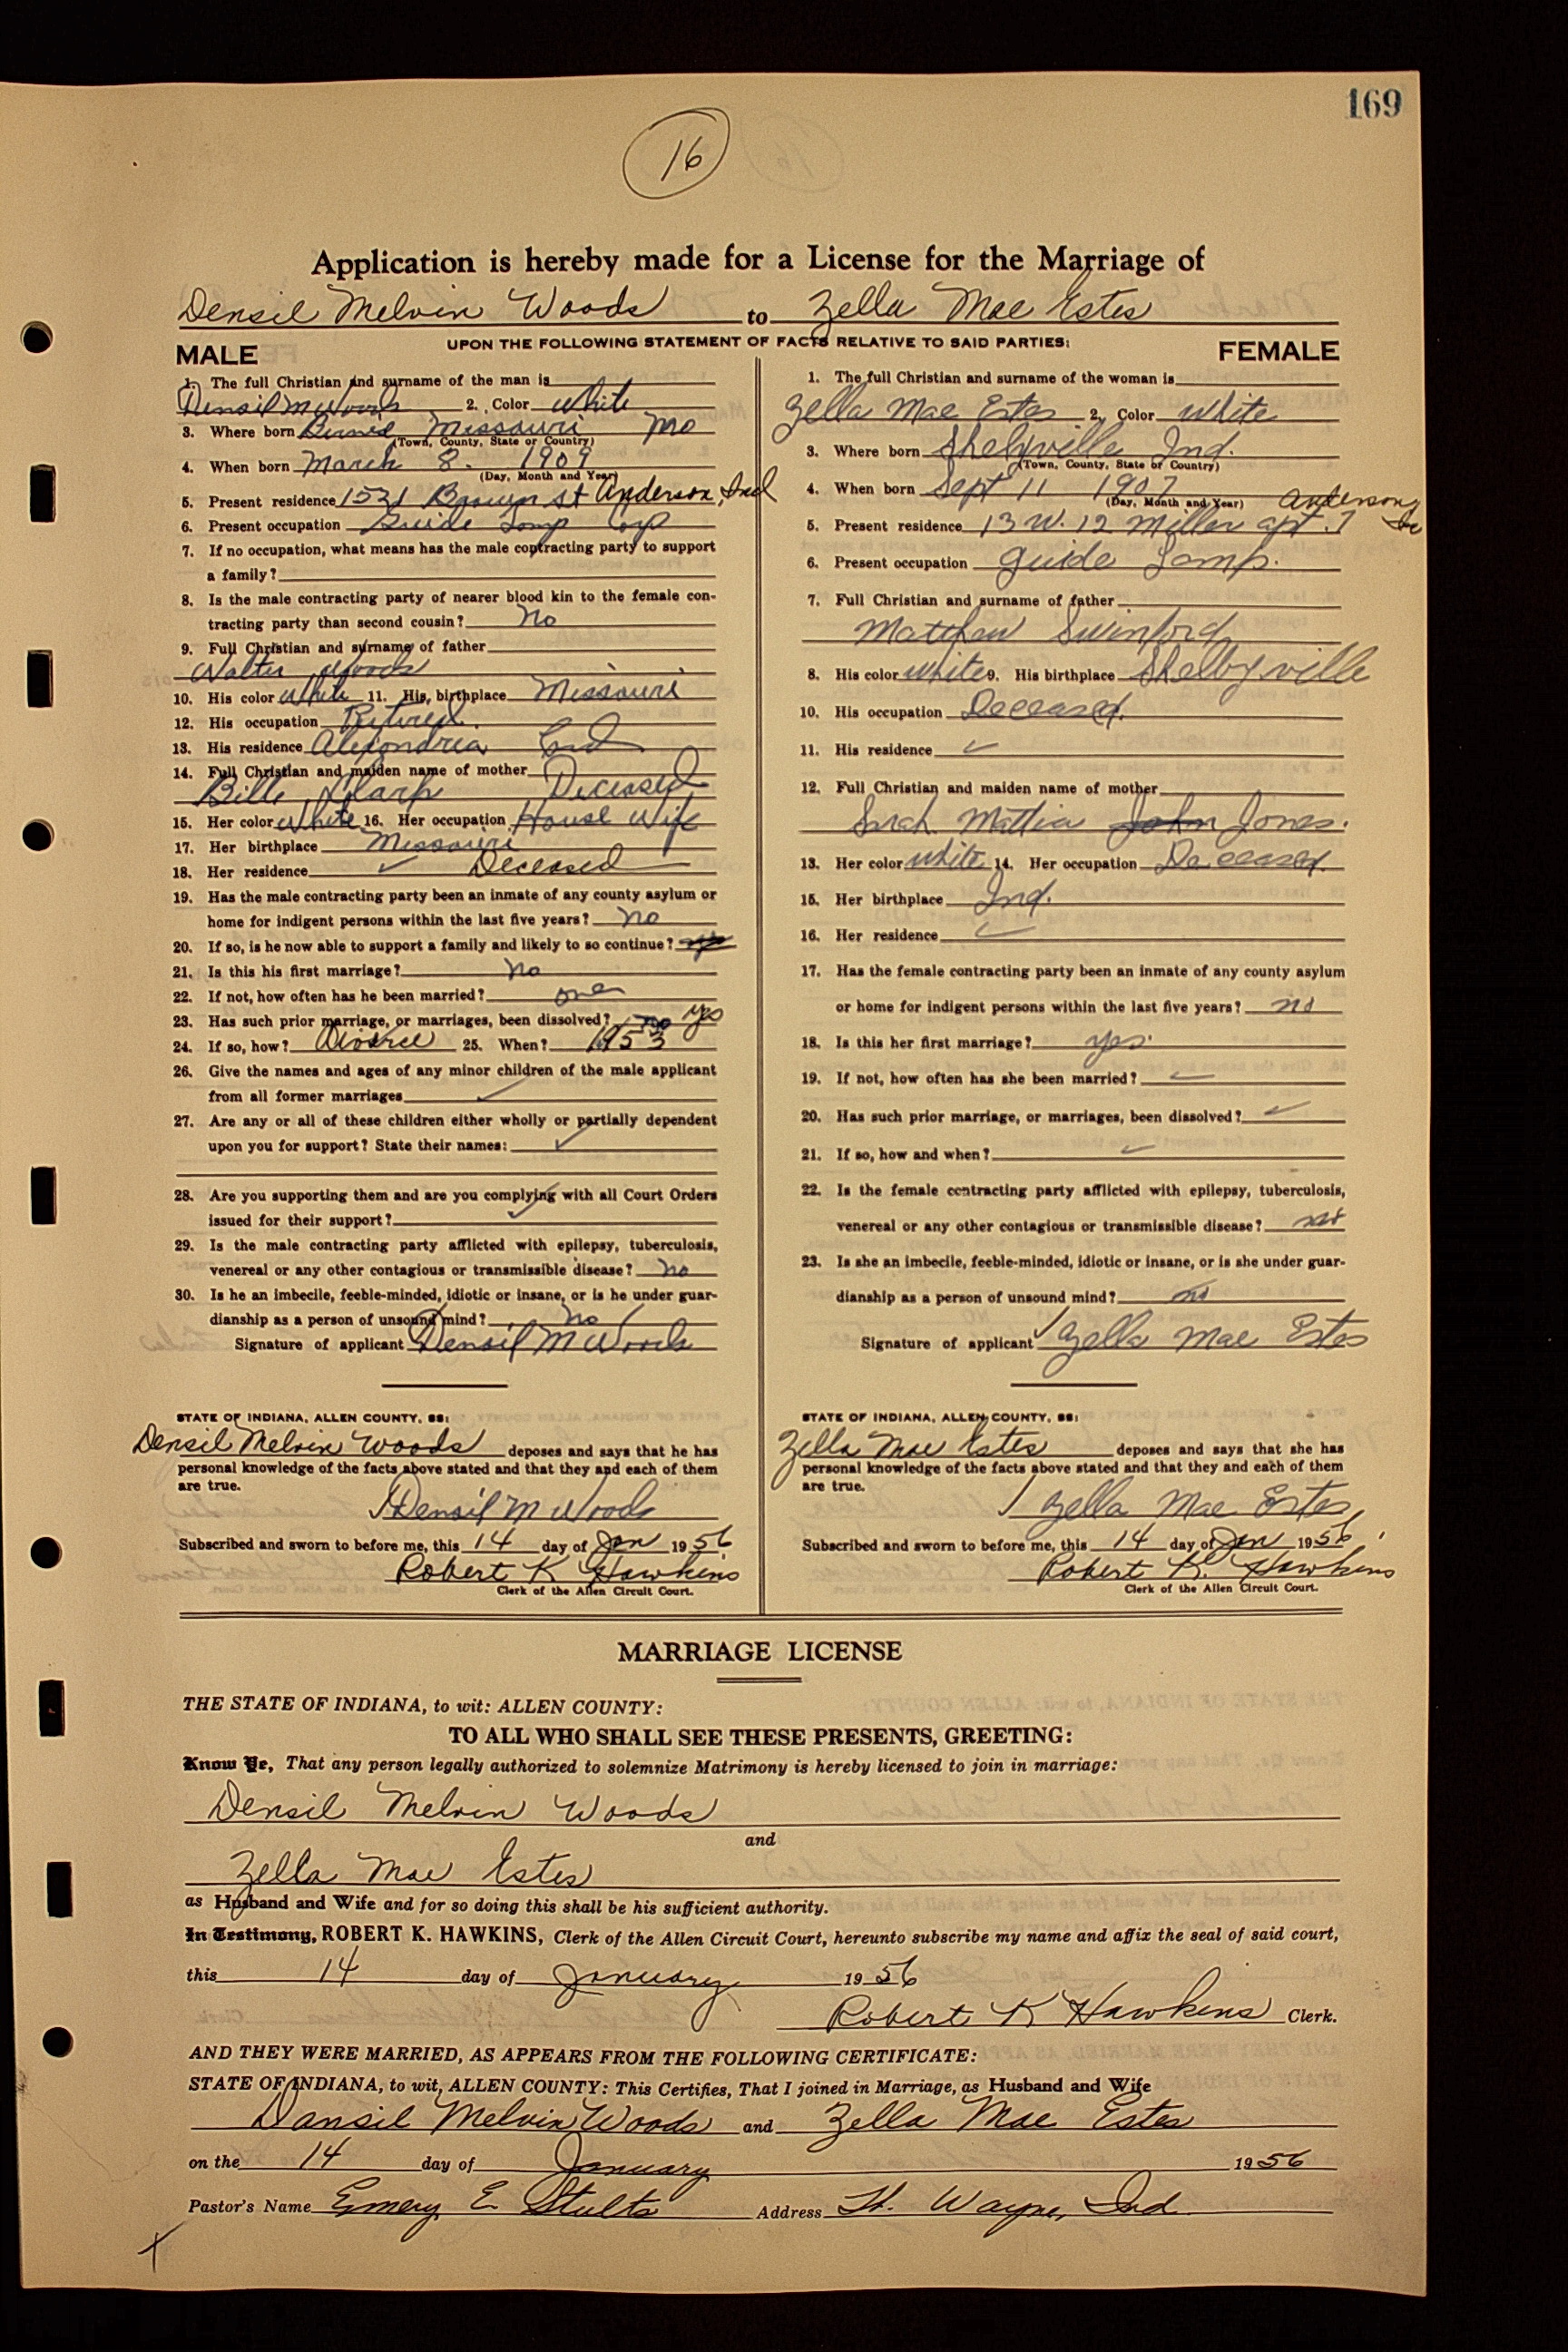 169
16
Application is hereby made for a License for the Marriage of
Densil Melvin Woods to Zella Mae Estes
UPON THE FOLLOWING STATEMENT OF FACTS RELATIVE TO SAID PARTIES:
MALE
1. The full Christian and surname of the man is
Densil M Woods 2. Color White
3. Where born Missouri Mo
(Town, County, State or Country)
4. When born March 8. 1909
(Day, Month and Year)
5. Present residence 1531 Brown St Anderson, Ind
6. Present occupation Guide Lamp Corp
7. If no occupation, what means has the male contracting party to support
a family?
8. Is the male contracting party of nearer blood kin to the female con-
tracting party than second cousin? No
9. Full Christian and surname of father
Walter Woods
10. His color White 11. His birthplace Missouri
12. His occupation Retired
13. His residence Alexandria Ind
14. Full Christian and maiden name of mother
Bille Sharp Deceased
15. Her color White 16. Her occupation House Wife
17. Her birthplace Missouri
18. Her residence Deceased
19. Has the male contracting party been an inmate of any county asylum or
home for indigent persons within the last five years? no
20. If so, is he now able to support a family and likely to so continue?
21. Is this his first marriage? no
22. If not, how often has he been married? one
23. Has such prior marriage, or marriages, been dissolved? no yes
24. If so, how? Divorce 25. When? 1953
26. Give the names and ages of any minor children of the male applicant
from all former marriages
27. Are any or all of these children either wholly or partially dependent
upon you for support? State their names:
28. Are you supporting them and are you complying with all Court Orders
issued for their support?
29. Is the male contracting party afflicted with epilepsy, tuberculosis,
venereal or any other contagious or transmissible disease? no
30. Is he an imbecile, feeble-minded, idiotic or insane, or is he under guar-
dianship as a person of unsound mind? no
Signature of applicant Densil M Woods
STATE OF INDIANA, ALLEN COUNTY, SS:
Densil Melvin Woods deposes and says that he has
personal knowledge of the facts above stated and that they and each of them
are true.
Densil M Woods
Subscribed and sworn to before me, this 14 day of Jan 1956
Robert K Hawkins
Clerk of the Allen Circuit Court.
FEMALE
1. The full Christian and surname of the woman is
Zella Mae Estes 2. Color White
3. Where born Shelyville Ind.
(Town, County, State or Country)
4. When born Sept 11 1907
(Day, Month and Year)
Anderson,
5. Present residence 13 W. 12 Miller apt. 7
6. Present occupation Guide Lamp.
7. Full Christian and surname of father
Matthew Swinford
8. His color White 9. His birthplace Shelbyville
10. His occupation Deceased.
11. His residence
12. Full Christian and maiden name of mother
Sarah Mattia John Jones.
13. Her color White 14. Her occupation Deceased.
15. Her birthplace Ind.
16. Her residence
17. Has the female contracting party been an inmate of any county asylum
or home for indigent persons within the last five years? no
18. Is this her first marriage? yes.
19. If not, how often has she been married?
20. Has such prior marriage, or marriages, been dissolved?
21. If so, how and when?
22. Is the female contracting party afflicted with epilepsy, tuberculosis,
venereal or any other contagious or transmissible disease?
23. Is she an imbecile, feeble-minded, idiotic or insane, or is she under guar-
dianship as a person of unsound mind? no
Signature of applicant Zella Mae Estes
STATE OF INDIANA, ALLEN COUNTY, SS:
Zella Mae Estes deposes and says that she has
personal knowledge of the facts above stated and that they and each of them
are true.
Zella Mae Estes
Subscribed and sworn to before me, this 14 day of Jan 1956
Robert K. Hawkins
Clerk of the Allen Circuit Court.
MARRIAGE LICENSE
THE STATE OF INDIANA, to wit: ALLEN COUNTY:
TO ALL WHO SHALL SEE THESE PRESENTS, GREETING:
Know Ye, That any person legally authorized to solemnize Matrimony is hereby licensed to join in marriage:
Densil Melvin Woods
and
Zella Mae Estes
as Husband and Wife and for so doing this shall be his sufficient authority.
In Testimony, ROBERT K. HAWKINS, Clerk of the Allen Circuit Court, hereunto subscribe my name and affix the seal of said court,
this 14 day of January 1956
Robert K Hawkins Clerk.
AND THEY WERE MARRIED, AS APPEARS FROM THE FOLLOWING CERTIFICATE:
STATE OF INDIANA, to wit, ALLEN COUNTY: This Certifies, That I joined in Marriage, as Husband and Wife
Dansil Melvin Woods and Zella Mae Estes
on the 14 day of January 1956
Pastor's Name Emery E Stults Address Ft. Wayne, Ind.